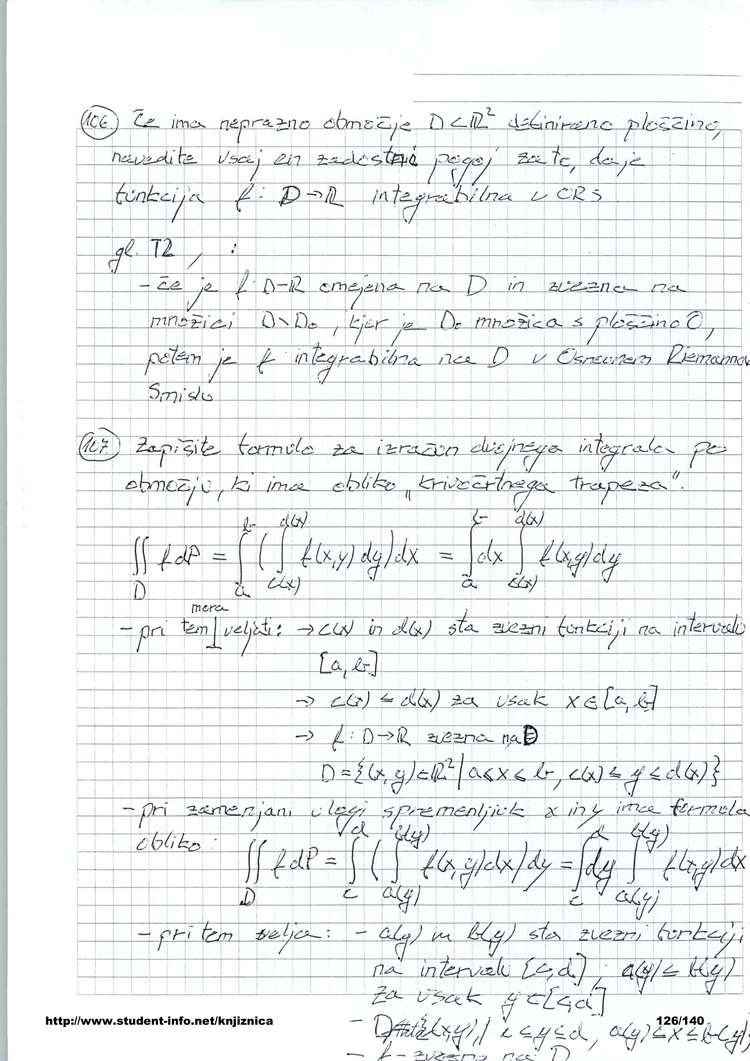 106. Če ima neprazno območje D⊂ℝ² definirano ploščino,
navedite vsaj en zadostni pogoj za to, da je
funkcija f: D→ℝ integrabilna v ORS.
gl. T2, :
- če je f: D→ℝ omejena na D in zvezna na
množici D\D₀, kjer je D₀ množica s ploščino 0,
potem je f integrabilna na D v Osnovnem Riemannov
smislu
107. Zapišite formulo za izračun dvojnega integrala po
območju, ki ima obliko „krivočrtnega trapeza".
∬_D f dP = ∫_a^b ( ∫_{c(x)}^{d(x)} f(x,y) dy ) dx = ∫_a^b dx ∫_{c(x)}^{d(x)} f(x,y) dy
- pri tem mora veljati: → c(x) in d(x) sta zvezni funkciji na intervalu
[a,b]
→ c(x) ≤ d(x) za vsak x∈[a,b]
→ f: D→ℝ zvezna na D
D={(x,y)∈ℝ² | a≤x≤b, c(x)≤y≤d(x)}
- pri zamenjani vlogi spremenljivk x in y ima formula
obliko: ∬_D f dP = ∫_c^d ( ∫_{a(y)}^{b(y)} f(x,y) dx ) dy = ∫_c^d dy ∫_{a(y)}^{b(y)} f(x,y) dx
- pri tem velja: - a(y) in b(y) sta zvezni funkciji
na intervalu [c,d], a(y) ≤ b(y)
za vsak y∈[c,d]
- D={(x,y) | c≤y≤d, a(y)≤x≤b(y)}
- f - zvezna na D
http://www.student-info.net/knjiznica 126/140